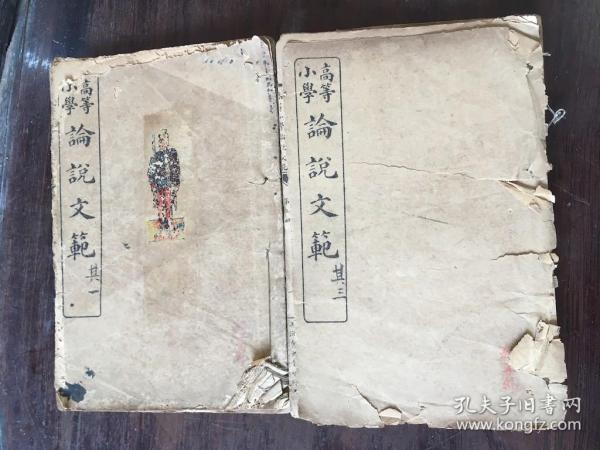 高等小學
論說文範
其一
高等小學
論說文範
其三
孔夫子旧書网
www.kongfz.com